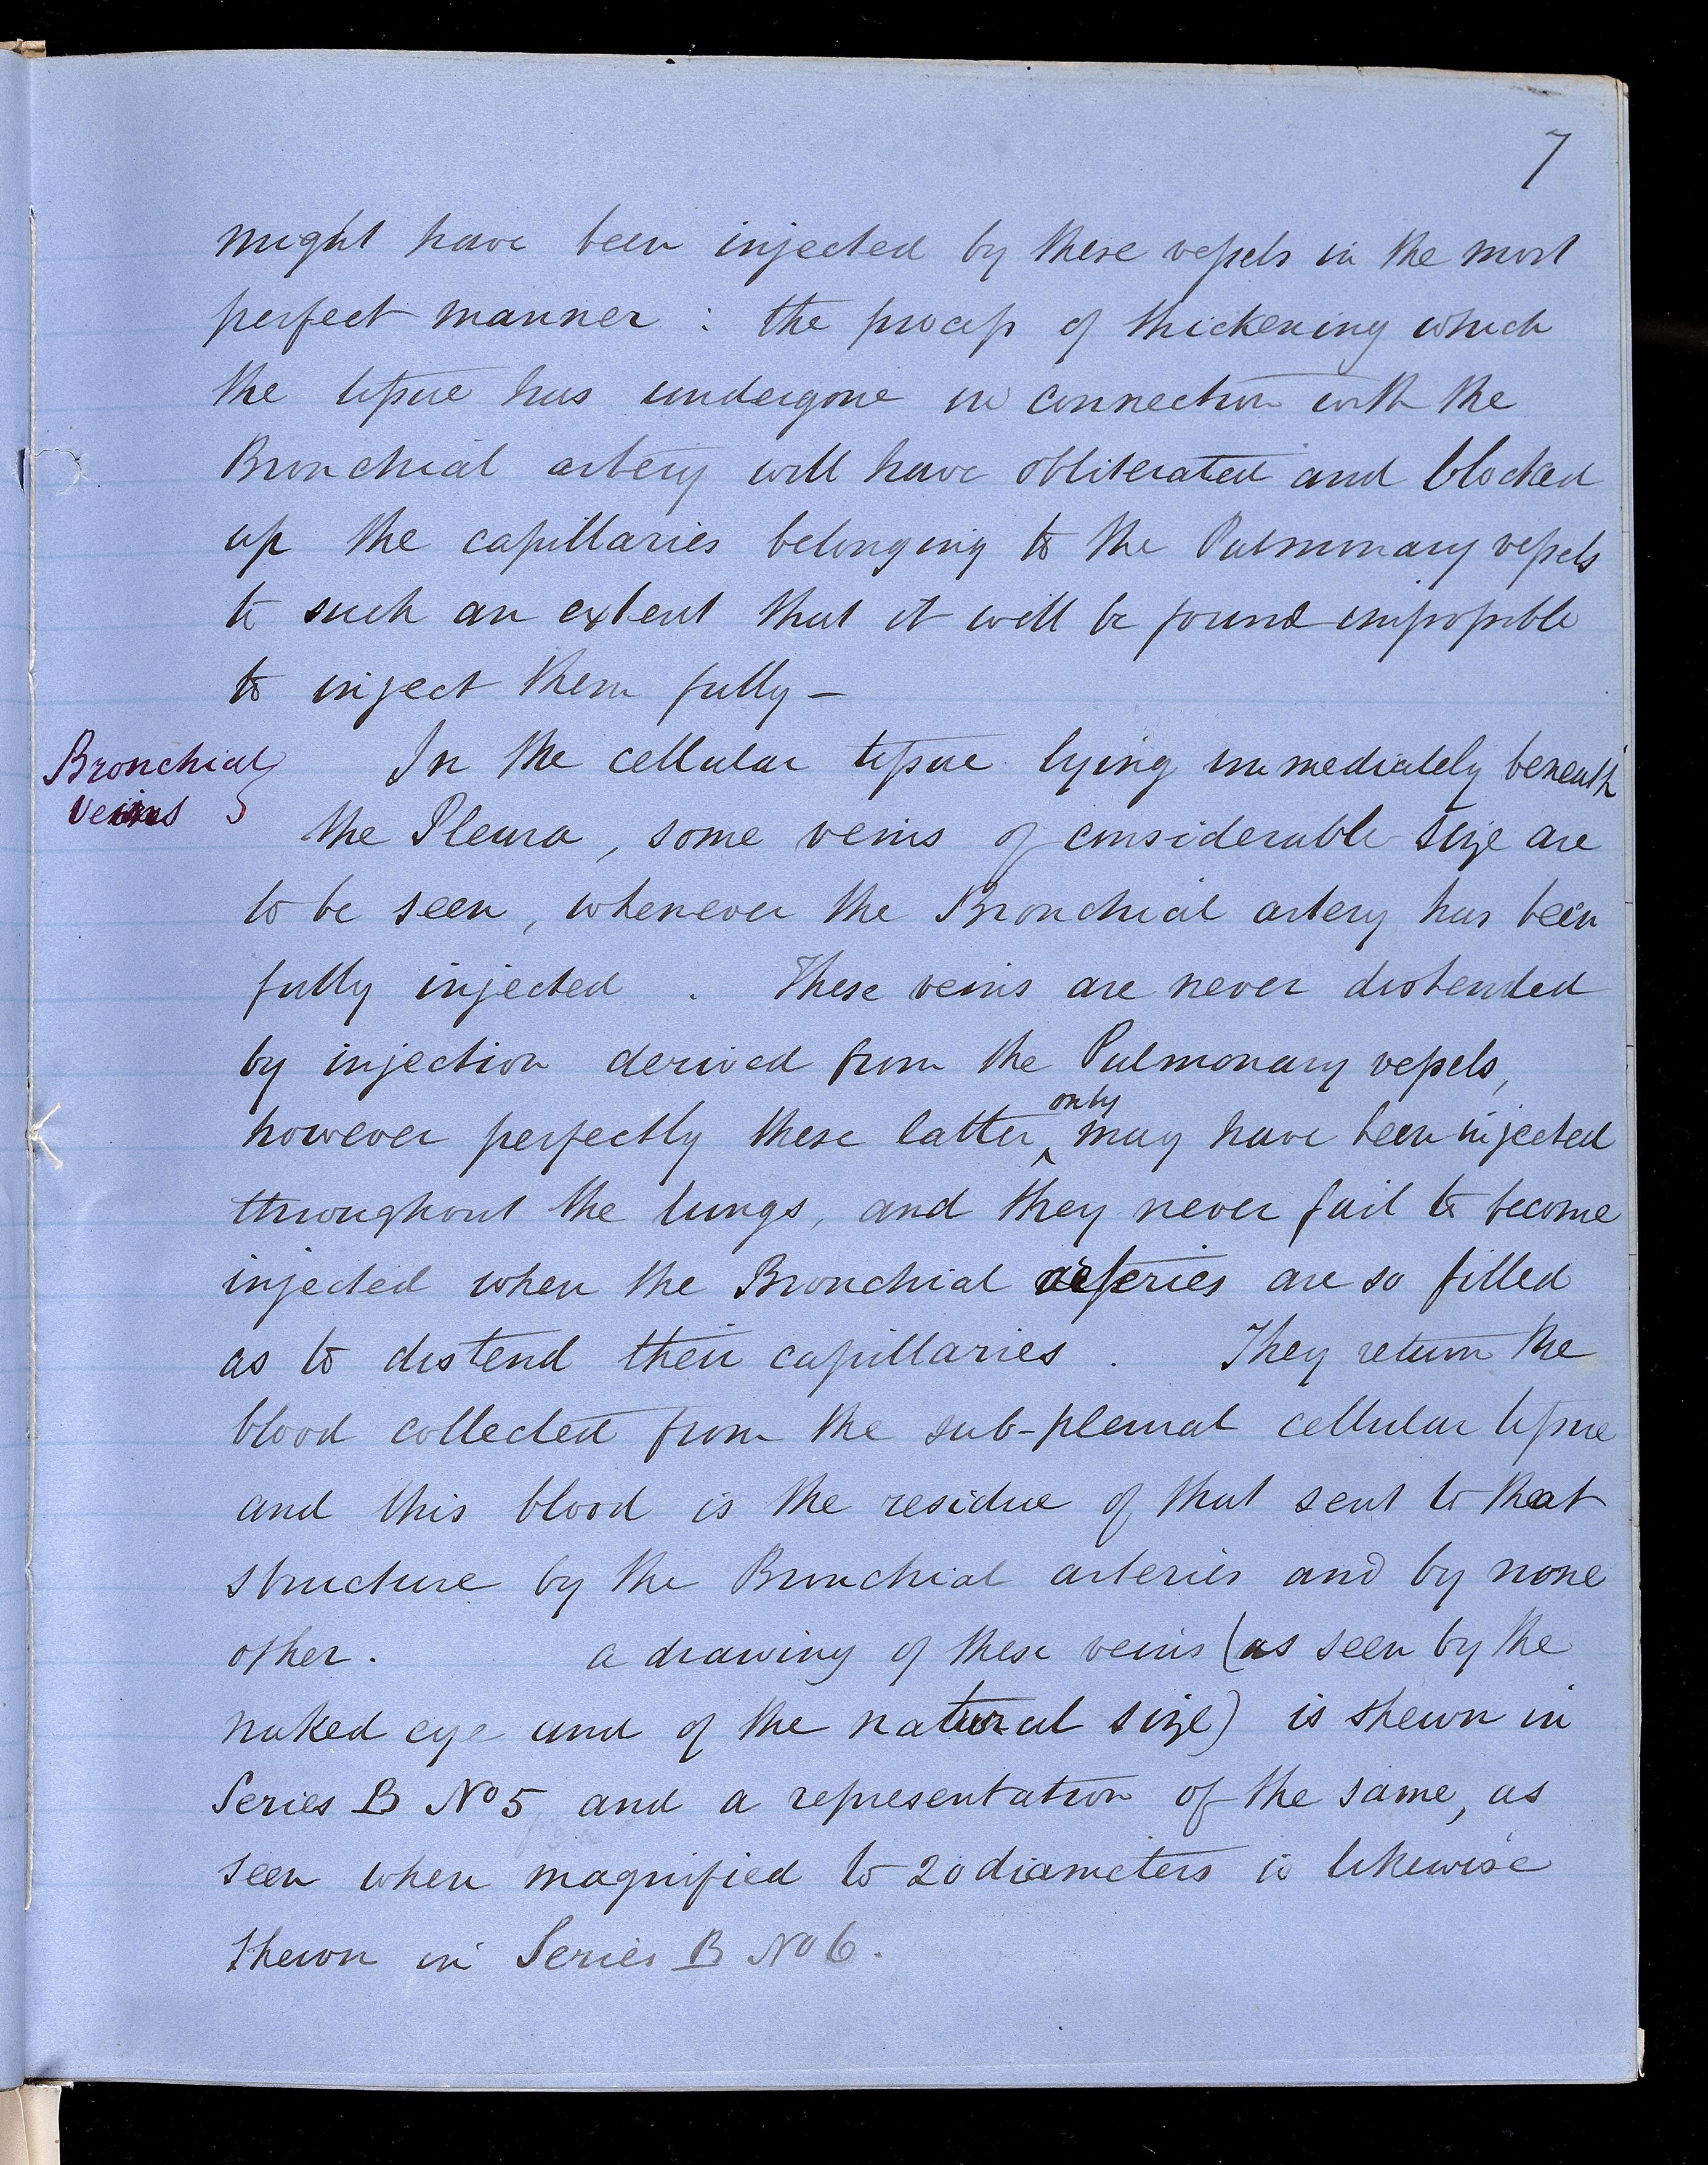 7
might have been injected by these vessels in the most
perfect manner : the process of thickening which
the tissue has undergone in connection with the
Bronchial artery will have obliterated and blocked
up the capillaries belonging to the Pulmonary vessels
to such an extent that it will be found impossible
to inject them fully —
Bronchial
veins
In the cellular tissue lying immediately beneath
the Pleura, some veins of considerable size are
to be seen, whenever the Bronchial artery has been
fully injected . These veins are never distended
by injection derived from the Pulmonary vessels,
only
however perfectly these latter ‸ may have been injected
throughout the lungs, and they never fail to become
injected when the Bronchial arteries are so filled
as to distend their capillaries . They return the
blood collected from the sub-pleural cellular tissue
and this blood is the residue of that sent to that
structure by the Bronchial arteries and by none
other. a drawing of these veins (as seen by the
naked eye and of the natural size) is shewn in
Series B No 5 and a representation of the same, as
seen when magnified to 20 diameters is likewise
shewn in Series B No 6.